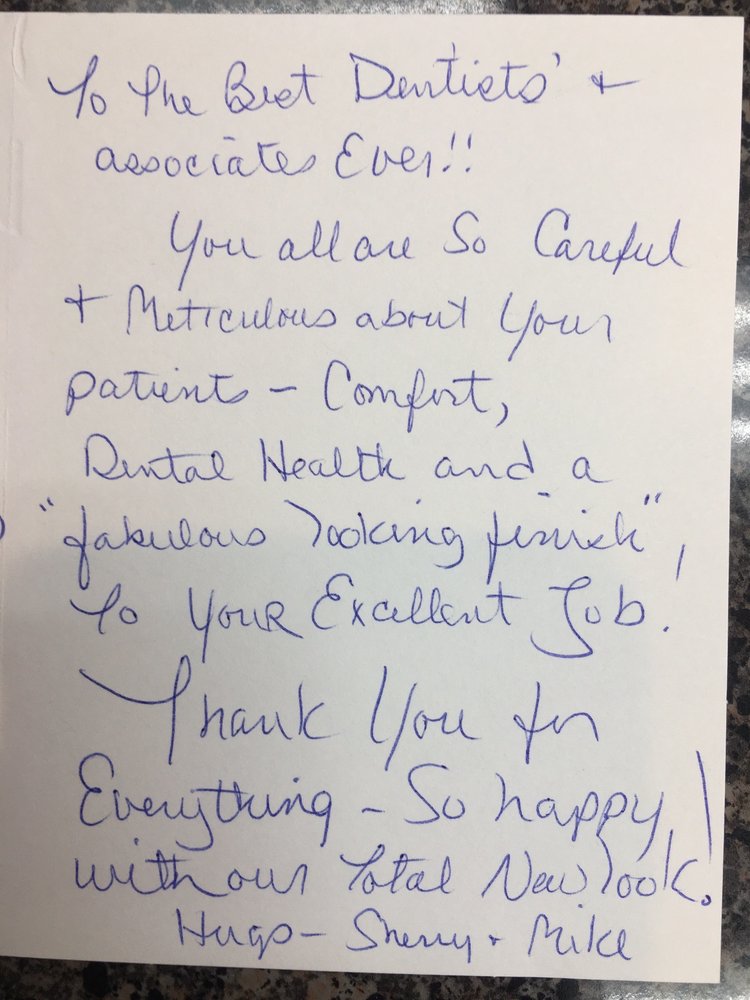 To The Best Dentists' +
associates Ever!!
You all are So Careful
+ Meticulous about Your
patients – Comfort,
Dental Health and a
"fabulous looking finish",
To YOUR Excellent Job!
Thank You for
Everything – So happy
with our Total New look!
Hugs – Sherry + Mike